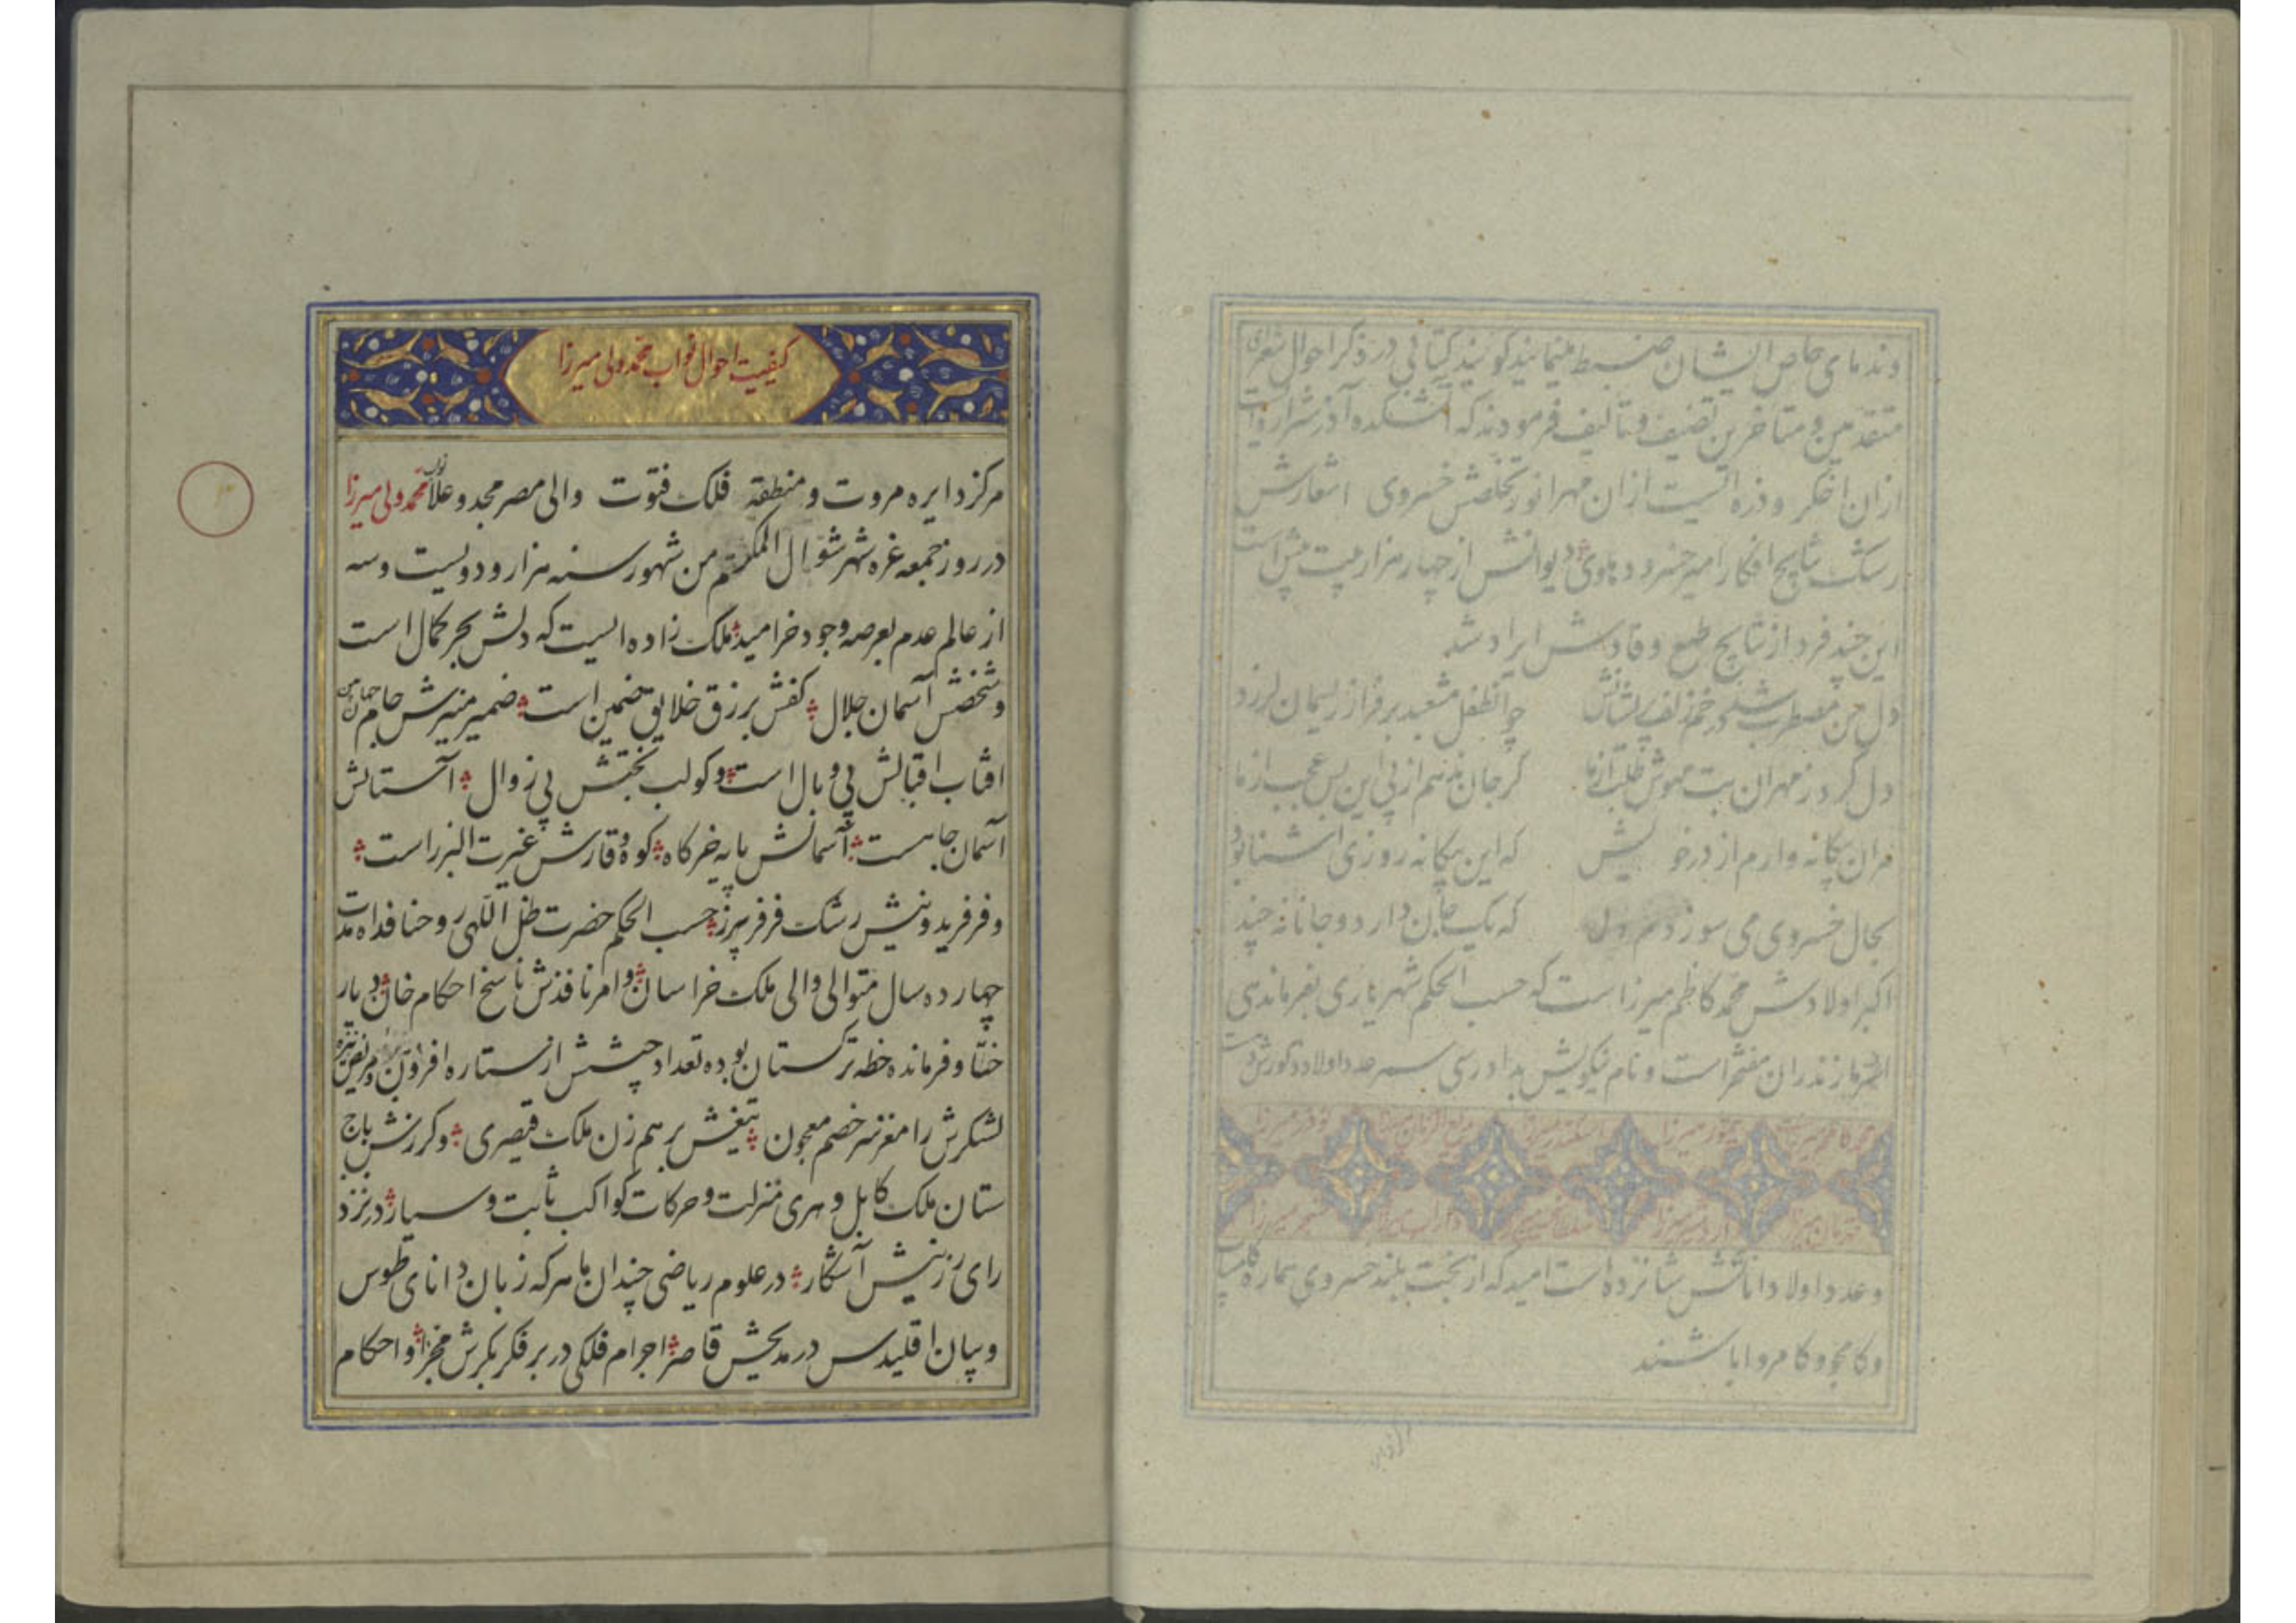 وندمای خاص ایشان ضبط مینمایند گویند کتابی در ذکر احوال شعرای
متقدمین و متأخرین تصنیف و تألیف فرمودند که آتشکده آذر شراره ایست
ازان اخکر و ذره ایست ازان مهر انور تخلصش خسروی اشعارش
رشک نتایج افکار امیرخسرو دهلوی دیوانش از چهار هزار بیت بیش است
این چند فرد از نتایج طبع وقادش ایراد شد
دل من مضطرب شد در خم زلف پریشانش چو انطفل مشعبد بر فراز ریسمان لرزد
دل کرد ز مهر ان بت مهوش طلب از ما گر جان ندهم از پی این بس عجب از ما
مران بیگانه وارم از در خویش که این بیگانه روزی اشنا بود
بحال خسروی می سوزدم دل که یک جان دارد و جانانه چند
اکبر اولادش محمد کاظم میرزا است که حسب الحکم شهریاری بفرماندهی
مازندران مفتخر است و نام نیکویش بدادرسی سمر عدد اولاد ذکورش
وعدد اولاد اناثش شانزده است امید که از بخت بلند خسروی هماره کامیاب
وکامجو و کامروا باشند
مرکز دایره
کیفیت احوال نواب محمد ولی میرزا
مرکز دایره مروت و منطقه فلک فتوت والی مصر مجد و علا نواب محمد ولی میرزا
در روز جمعه غره شهر شوال المکرم من شهور سنه هزار و دویست و سه
از عالم عدم بعرصه وجود خرامید ملک زاده ایست که دلش بحر کمال است
وشخصش آسمان جلال کفش برزق خلایق ضمین است ضمیر منیرش جام جهان بین
افتاب اقبالش بی وبال است و کوکب بختش بی زوال آستانش
آسمان جاهست آسمانش پایه خرکاه کوه وقارش غیرت البرز است
وفر فریدونیش رشک فر فریبرز حسب الحکم حضرت ظل اللهی روحنا فداه مدت
چهارده سال متوالی والی ملک خراسان و امر نافذش ناسخ احکام خان دیار
ختا و فرمانده خطه ترکستان بوده تعداد جیشش از ستاره افزون و نیزه
لشکرش را مغز سر خصم معجون تیغش برهم زن ملک قیصری و کرزش باج
ستان ملک کابل و هری منزلت و حرکات کواکب ثابت و سیار در نزد
رای رزینش آشکار در علوم ریاضی چندان ماهر که زبان دانای طوس
وبیان اقلیدس در مدیحش قاصر اجرام فلکی در بر فکر بکرش مخبر و احکام